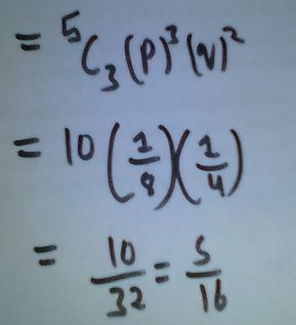 = ⁵C₃ (p)³ (q)²
= 10 (1/8)(1/4)
= 10/32 = 5/16